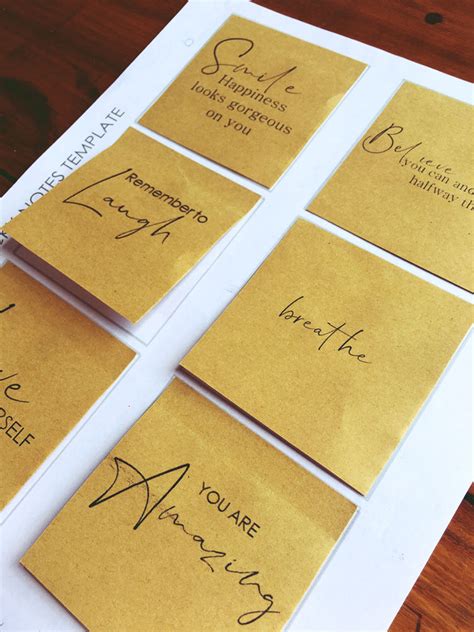 NOTES TEMPLATE
Smile
Happiness
looks gorgeous
on you
Believe
you can and
halfway
Remember to
Laugh
breathe
YOU ARE
Amazing